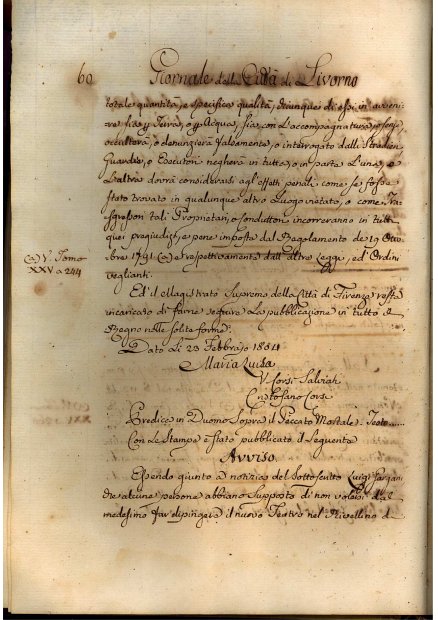 60 Giornale della Città di Livorno
totale quantità, e specifica qualità, chiunque di essi in avveni-
re sia per Terra, o per Acqua, sia con l'accompagnatura, o senza,
occulterà, o denunzierà falsamente, o interrogato dalli Stradieri
Guardie, o Esecutori negherà in tutto, o in parte l'una, e
l'altra dovrà considerarsi agl'effetti penali come se fosse
stato trovato in qualunque altro Luogo vietato, o come Tra-
sgressori tali Proprietari, o Conduttori incorreranno in tutti
quei pregiudizj, e pene imposte dal Regolamento de 19 Otto-
bre 1791 (a) e respettivamente dall'altre Leggi, ed Ordini
veglianti.
(a) V. Tomo
XXV a 244
Ed il Magistrato Supremo della Città di Firenze resta
incaricato di farne seguire la pubblicazione in tutto il
Regno nelle solite forme.
Dato li 23 Febbrajo 1804
Maria Luisa
V. Corsi Salviati
Cristofano Corsi
Predica in Duomo Sopra il Peccato Mortale. Testo......
Con le Stampe è stato pubblicato il Seguente
Avviso
Essendo giunto a notizia del Sottoscritto Luigi
che alcune persone abbiano Supposto di non volersi dal
medesimo far dipingere il nuovo Teatro nel Rivellino di